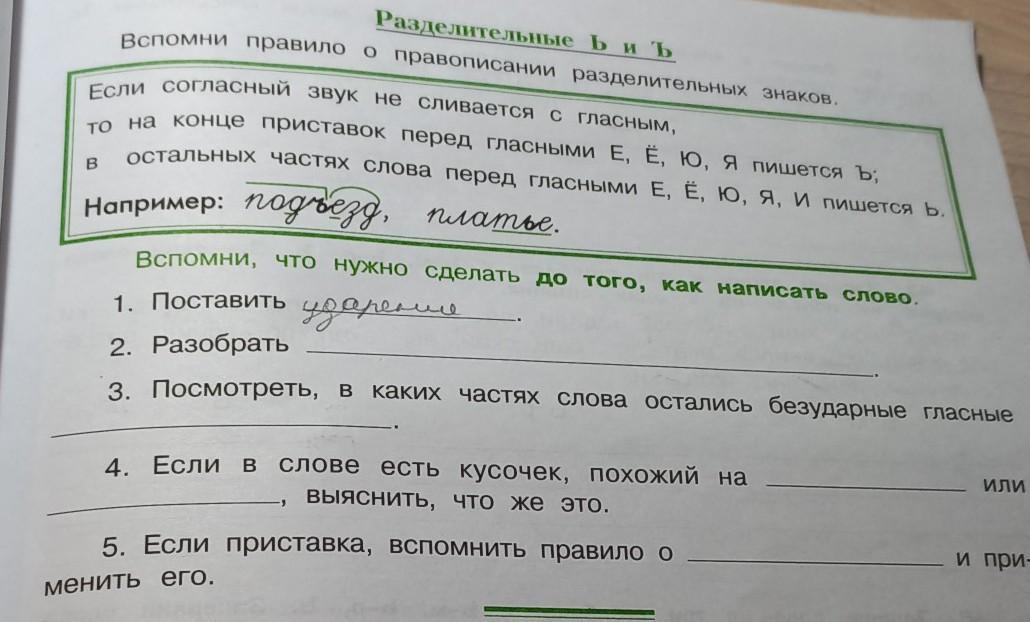 Разделительные Ь и Ъ
Вспомни правило о правописании разделительных знаков.
Если согласный звук не сливается с гласным,
то на конце приставок перед гласными Е, Ё, Ю, Я пишется Ъ;
в остальных частях слова перед гласными Е, Ё, Ю, Я, И пишется Ь.
Например: подъезд, платье.
Вспомни, что нужно сделать до того, как написать слово.
1. Поставить ударение.
2. Разобрать ______.
3. Посмотреть, в каких частях слова остались безударные гласные
______.
4. Если в слове есть кусочек, похожий на ______ или
______, выяснить, что же это.
5. Если приставка, вспомнить правило о ______ и при-
менить его.